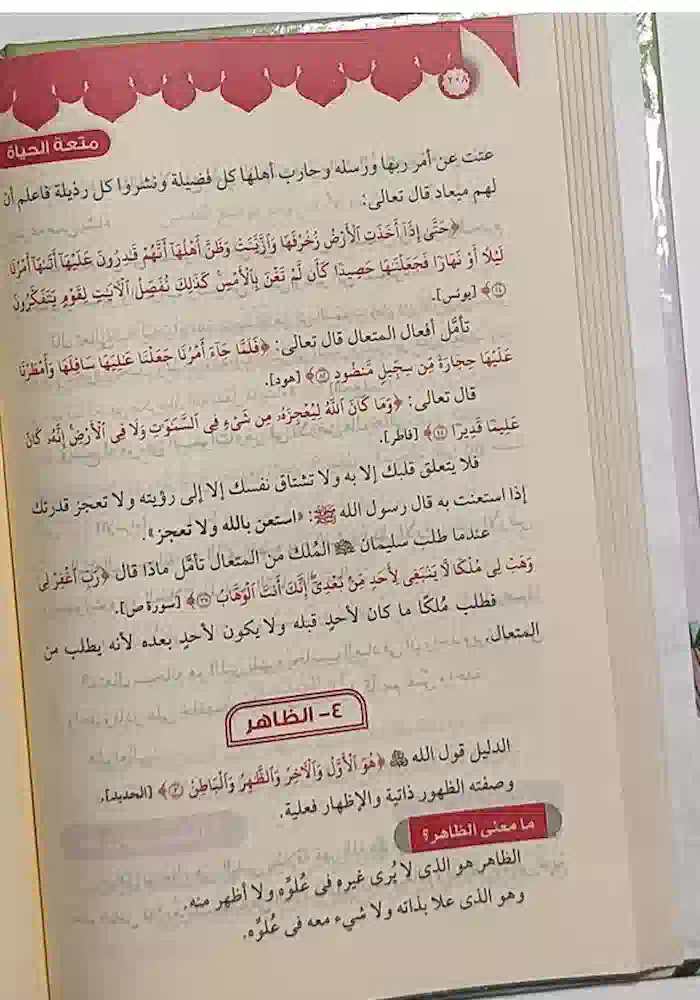 ٢٠٨
متعة الحياة
عتت عن أمر ربها ورسله وحارب أهلها كل فضيلة ونشروا كل رذيلة فاعلم أن
لهم ميعاد قال تعالى:
﴿حَتَّىٰ إِذَا أَخَذَتِ ٱلْأَرْضُ زُخْرُفَهَا وَٱزَّيَّنَتْ وَظَنَّ أَهْلُهَا أَنَّهُمْ قَٰدِرُونَ عَلَيْهَا أَتَىٰهَا أَمْرُنَا
لَيْلًا أَوْ نَهَارًا فَجَعَلْنَٰهَا حَصِيدًا كَأَن لَّمْ تَغْنَ بِٱلْأَمْسِ كَذَٰلِكَ نُفَصِّلُ ٱلْآيَٰتِ لِقَوْمٍ يَتَفَكَّرُونَ
﴾ [يونس].
تأمَّل أفعال المتعال قال تعالى: ﴿فَلَمَّا جَآءَ أَمْرُنَا جَعَلْنَا عَٰلِيَهَا سَافِلَهَا وَأَمْطَرْنَا
عَلَيْهَا حِجَارَةً مِّن سِجِّيلٍ مَّنضُودٍ ﴾ [هود].
قال تعالى: ﴿وَمَا كَانَ ٱللَّهُ لِيُعْجِزَهُۥ مِن شَىْءٍ فِى ٱلسَّمَٰوَٰتِ وَلَا فِى ٱلْأَرْضِ إِنَّهُۥ كَانَ
عَلِيمًا قَدِيرًا ﴾ [فاطر].
فلا يتعلق قلبك إلا به ولا تشتاق نفسك إلا إلى رؤيته ولا تعجز قدرتك
إذا استعنت به قال رسول الله ﷺ: «استعن بالله ولا تعجز».
عندما طلب سليمان المُلك من المتعال تأمَّل ماذا قال ﴿رَبِّ ٱغْفِرْ لِى
وَهَبْ لِى مُلْكًا لَّا يَنۢبَغِى لِأَحَدٍ مِّنۢ بَعْدِىٓ إِنَّكَ أَنتَ ٱلْوَهَّابُ ﴾ [سورة ص].
فطلب مُلكًا ما كان لأحدٍ قبله ولا يكون لأحدٍ بعده لأنه يطلب من
المتعال.
٤- الظاهر
الدليل قول الله ﴿هُوَ ٱلْأَوَّلُ وَٱلْآخِرُ وَٱلظَّٰهِرُ وَٱلْبَاطِنُ ﴾ [الحديد].
وصفته الظهور ذاتية والإظهار فعلية.
ما معنى الظاهر؟
الظاهر هو الذى لا يُرى غيره فى عُلوِّه ولا أظهر منه.
وهو الذى علا بذاته ولا شىء معه فى عُلوِّه.